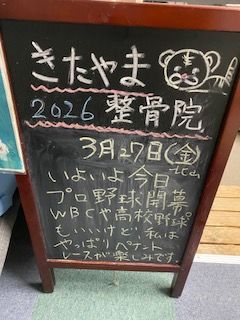 きたやま
2026 整骨院
3月27日(金)
いよいよ今日
プロ野球開幕
WBCや高校野球
もいいけど、私は
やっぱりペナント
レースが楽しみです。